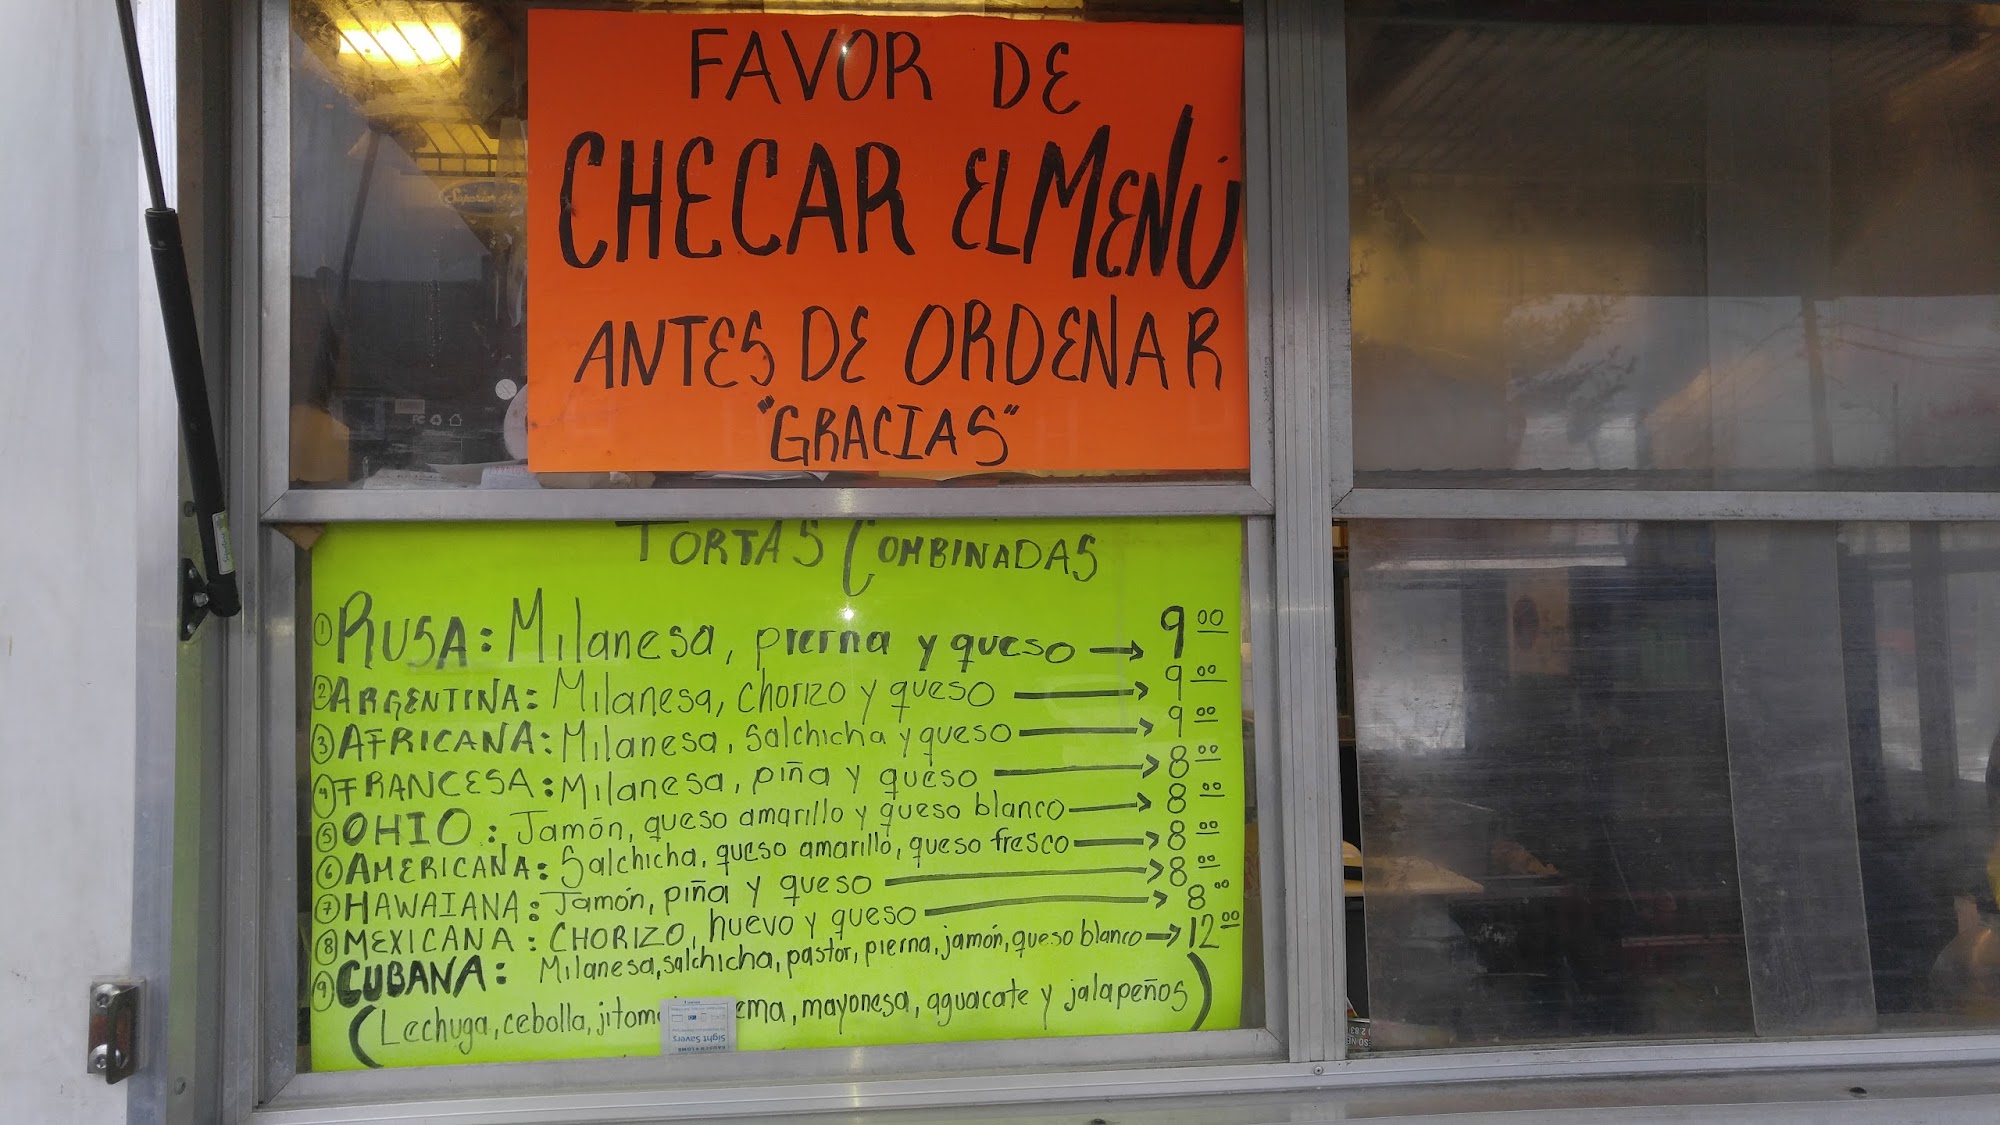 FAVOR DE
CHECAR EL MENÚ
ANTES DE ORDENAR
"GRACIAS"
TORTAS COMBINADAS
① RUSA: Milanesa, pierna y queso → 9.00
② ARGENTINA: Milanesa, chorizo y queso → 9.00
③ AFRICANA: Milanesa, salchicha y queso → 9.00
④ FRANCESA: Milanesa, piña y queso → 8.00
⑤ OHIO: Jamón, queso amarillo y queso blanco → 8.00
⑥ AMERICANA: Salchicha, queso amarillo, queso fresco → 8.00
⑦ HAWAIANA: Jamón, piña y queso → 8.00
⑧ MEXICANA: CHORIZO, huevo y queso → 8.00
⑨ CUBANA: Milanesa, salchicha, pastor, pierna, jamón, queso blanco → 12.00
(Lechuga, cebolla, jitom ema, mayonesa, aguacate y jalapeños)
Sight Savers
BAUSCH + LOMB